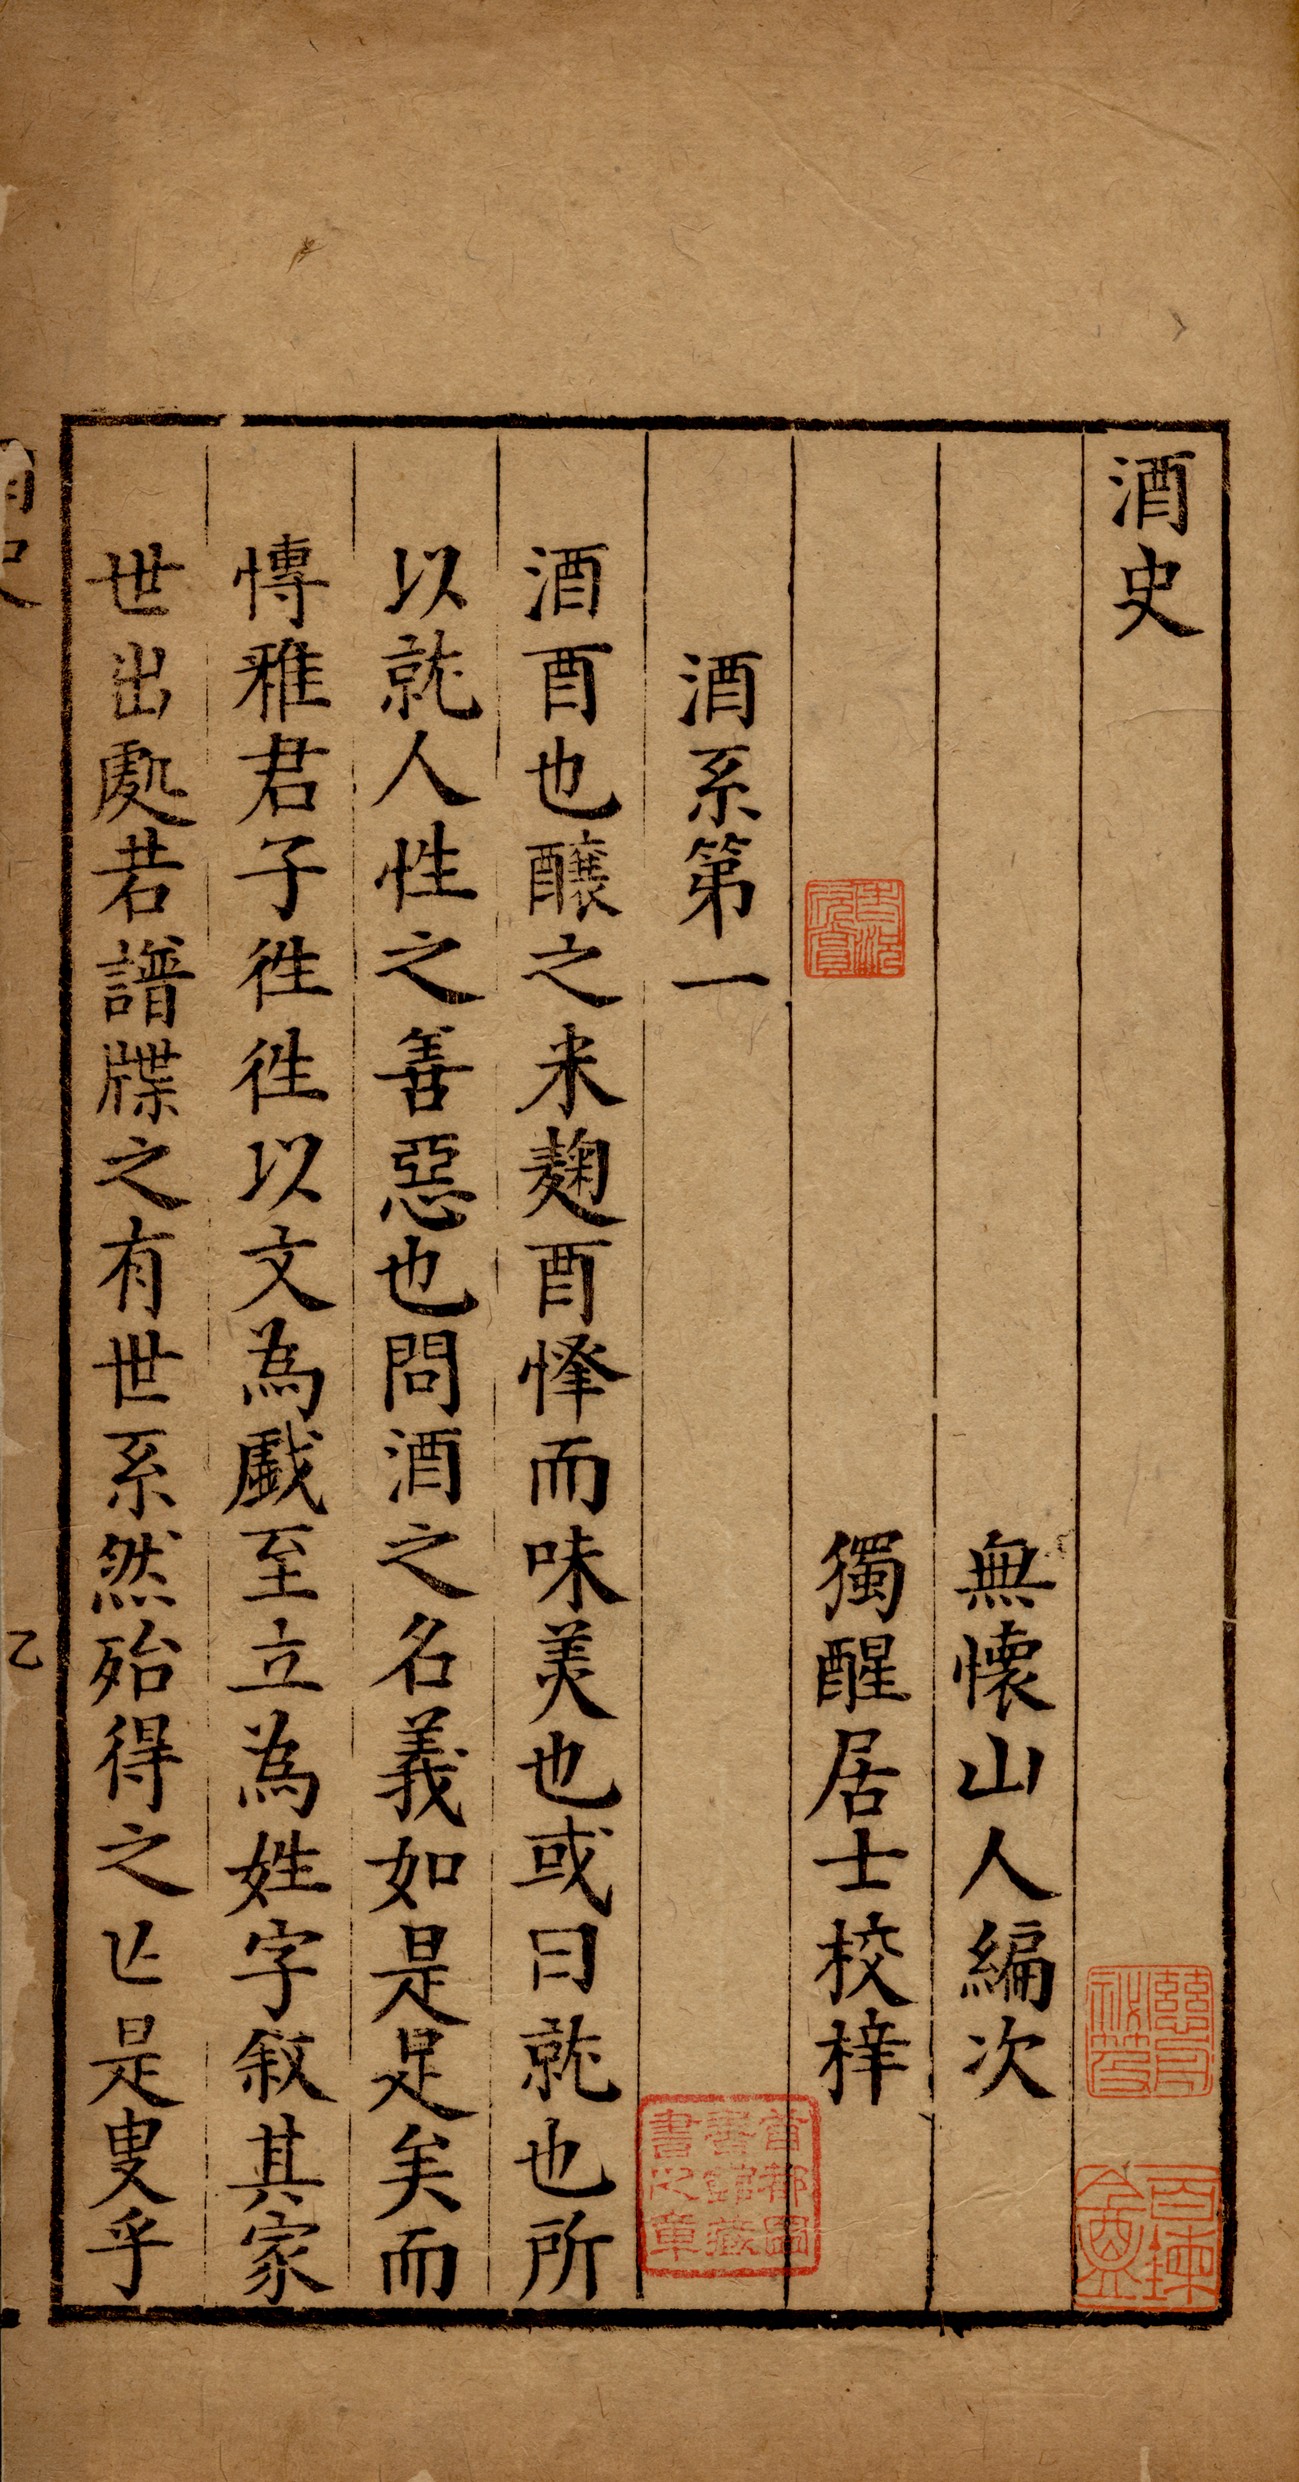 酒史
無懷山人編次
獨醒居士校梓
酒系第一
酒酉也釀之米麴酉懌而味美也或曰就也所
以就人性之善惡也問酒之名義如是足矣而
愽雅君子徃徃以文為戲至立為姓字叙其家
世出處若譜牒之有世系然殆得之亾是叟乎
酒史
乙
首都圖書館藏書之章
百鍊盦